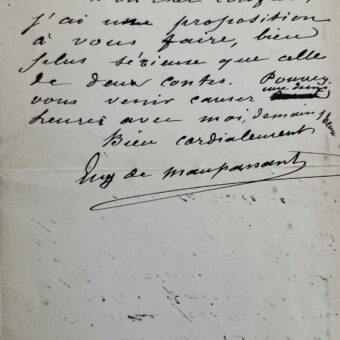 Mon cher confrère,
j'ai une proposition
à vous faire, bien
plus sérieuse que celle
de deux contes. Pouvez
vous venir causer une demi
heure avec moi, demain
Bien cordialement
Guy de Maupassant